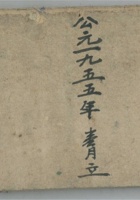 公元一九五五年 春月立